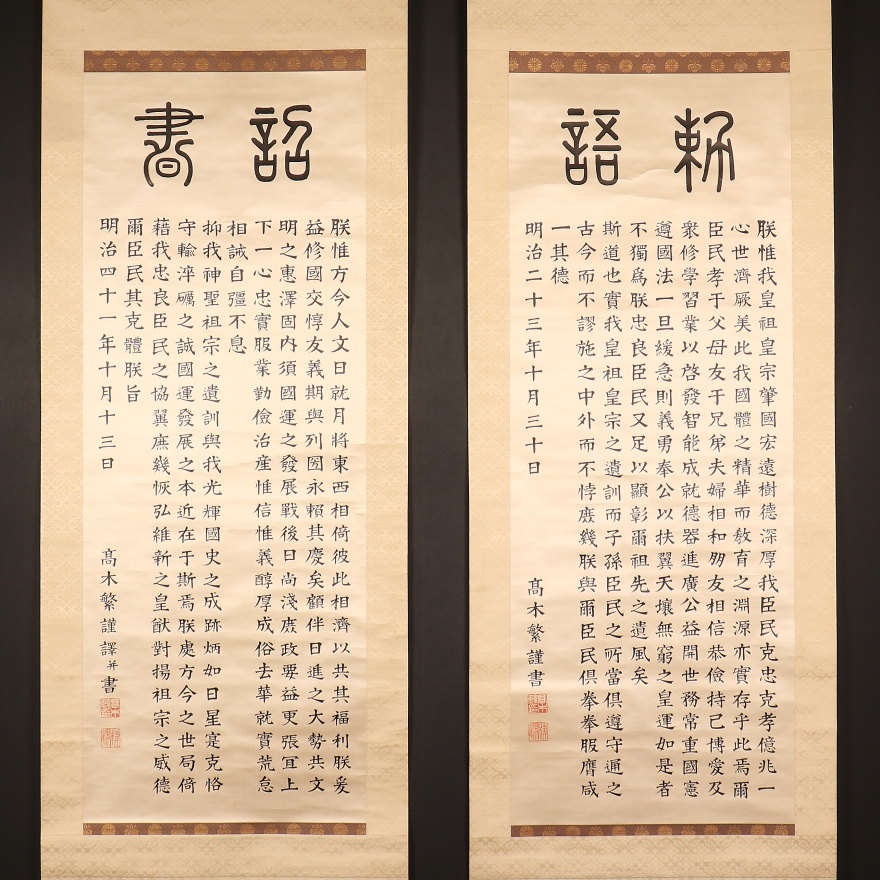 勅語
朕惟我皇祖皇宗肇國宏遠樹德深厚我臣民克忠克孝億兆一
心世濟厥美此我國體之精華而敎育之淵源亦實存乎此焉爾
臣民孝于父母友于兄弟夫婦相和朋友相信恭儉持己博愛及
衆修學習業以啓發智能成就德器進廣公益開世務常重國憲
遵國法一旦緩急則義勇奉公以扶翼天壤無窮之皇運如是者
不獨爲朕忠良臣民又足以顯彰爾祖先之遺風矣
斯道也實我皇祖皇宗之遺訓而子孫臣民之所當俱遵守通之
古今而不謬施之中外而不悖庶幾朕與爾臣民倶拳拳服膺咸
一其德
明治二十三年十月三十日
髙木繁謹書
詔書
朕惟方今人文日就月將東西相倚彼此相濟以共其福利朕爰
益修國交惇友義期與列國永賴其慶矣顧伴日進之大勢共文
明之惠澤固內須國運之發展戰後日尚淺庶政要益更張宜上
下一心忠實服業勤儉治產惟信惟義醇厚成俗去華就實荒怠
相誡自彊不息
抑我神聖祖宗之遺訓與我光輝國史之成跡炳如日星寔克恪
守輸淬礪之誠國運發展之本近在于斯焉朕處方今之世局倚
藉我忠良臣民之協翼庶幾恢弘維新之皇猷對揚祖宗之威德
爾臣民其克體朕旨
明治四十一年十月十三日
髙木繁謹譯并書